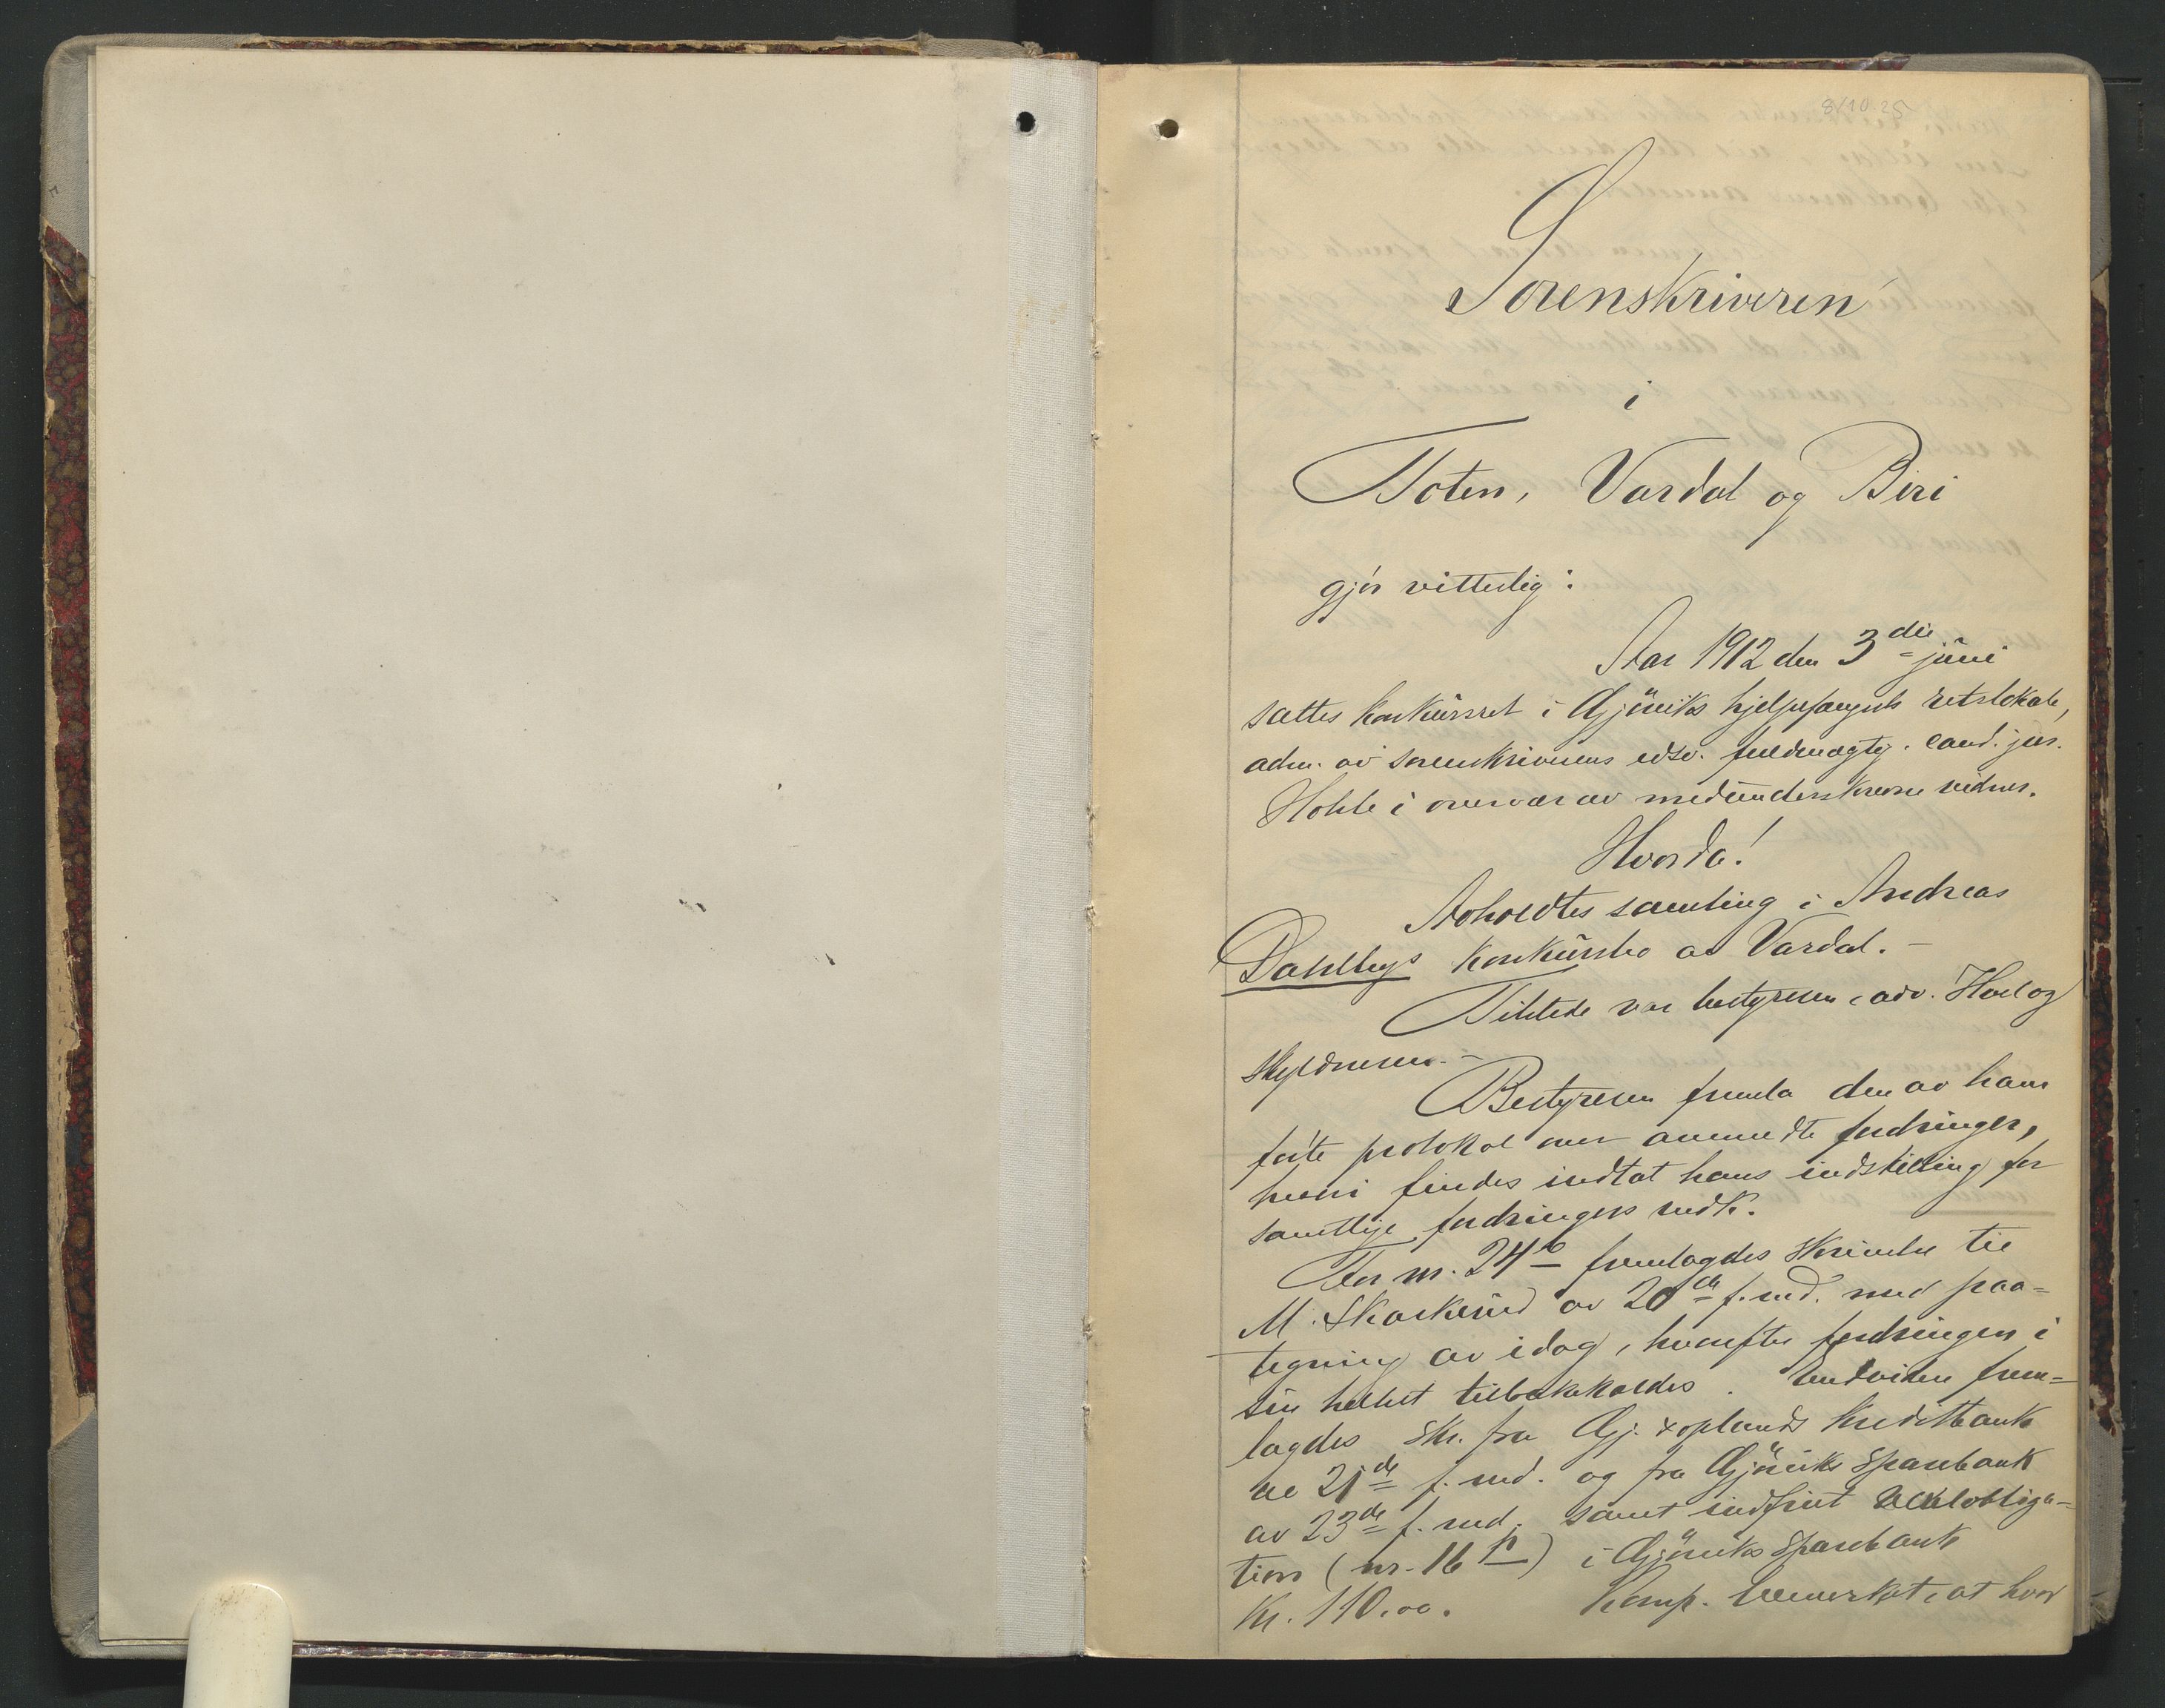 8/10.25
Sorenskriveren
i
Toten, Vardal og Biri
gjør vitterlig:
Aar 1912 den 3die juni
sattes konkursret i Gjøviks hjelpefængsels retslokale,
adm. av sorenskriverens edsv. fuldmægtig, cand. jur.
Hohle i overvær av medunderskrevne vidner.
Hvorda!
Avholdtes samling i Andreas
Dahlbys konkursbo av Vardal. –
Tilstede var bestyreren, adv. Hoel og
skyldneren. –
Bestyreren fremla den av ham
førte protokol over anmeldte fordringer,
hvori findes indtat hans indstilling for
samtlige fordringers vedk.
For nr. 24 b fremlagdes skrivelse til
M. Skaskerud av 20de f. md. med paa-
tegning av idag, hvorefter fordringen i
sin helhet tilbakekaldes. Endvidere frem-
lagdes skr. fra Gj. & oplands Kreditbank
av 21de f. md. og fra Gjøviks Sparebank
av 23de f. md. samt indfriet vekselobliga-
tion (nr. 16 ) i Gjøviks Sparebank
Kr. 110.00. Komp. bemerket, at hvor